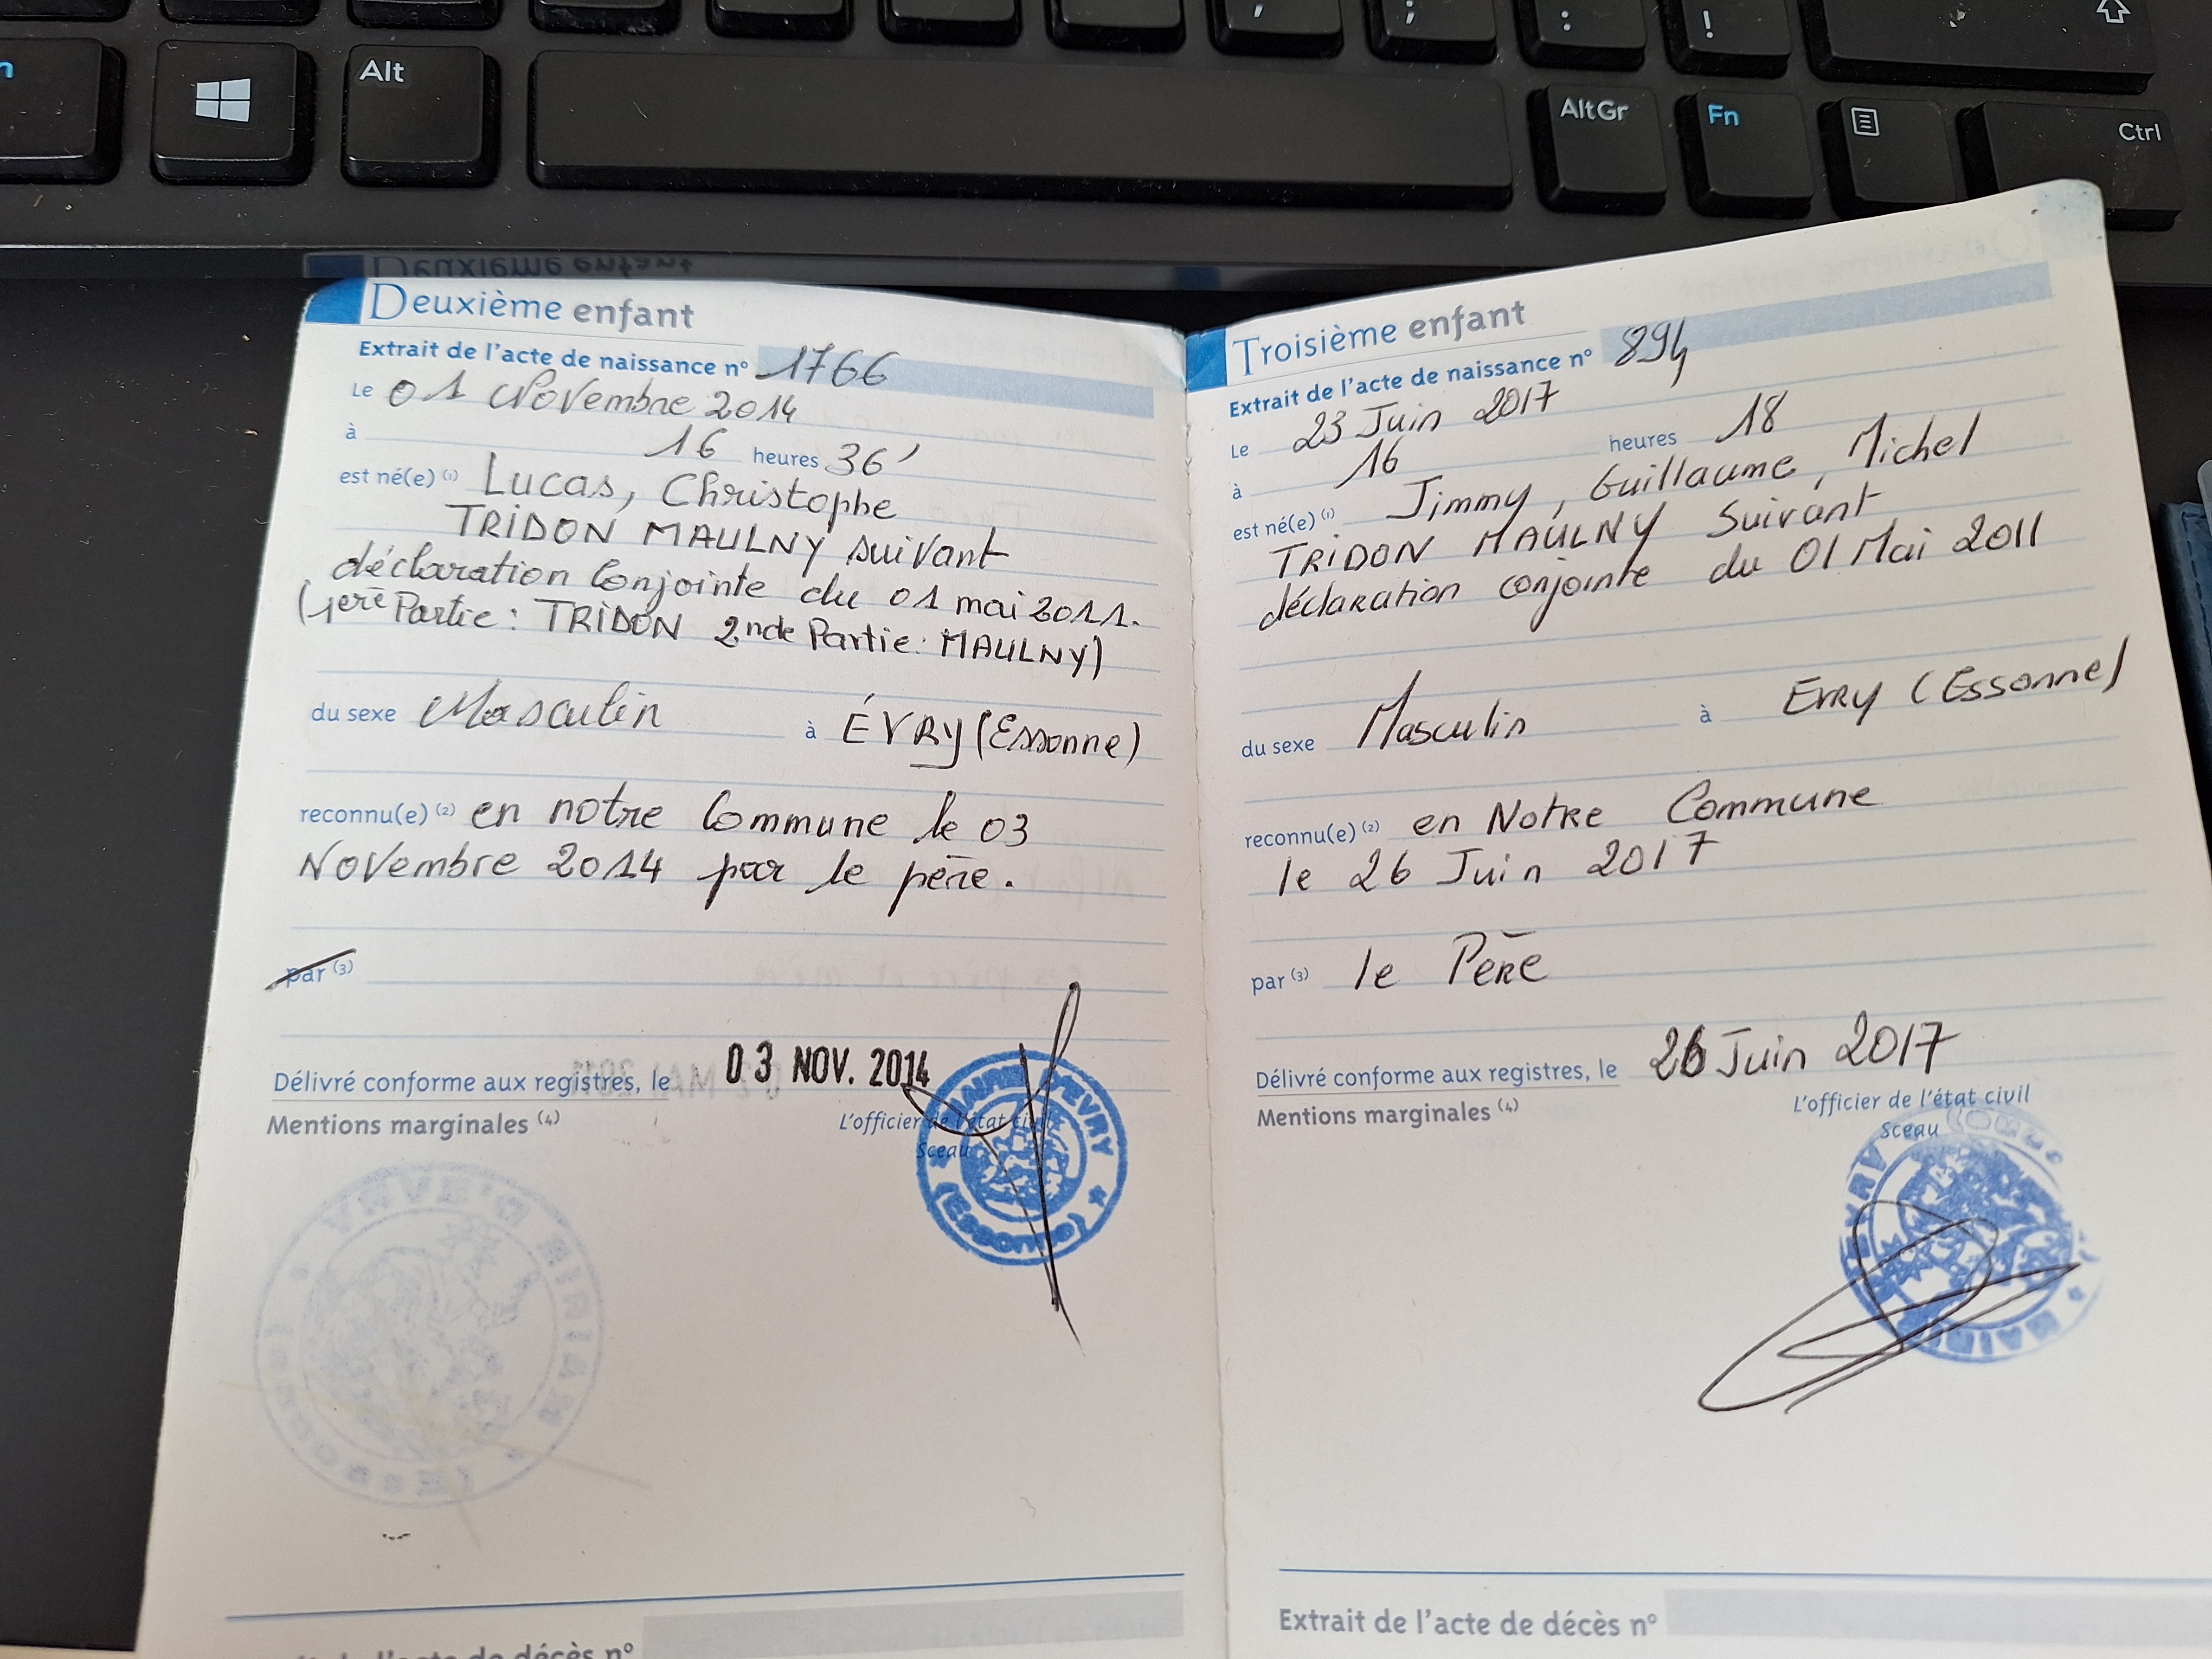 n
Alt
,
;
:
!
AltGr
Fn
Ctrl
Deuxième enfant
Extrait de l'acte de naissance n° 1766
Le 01 Novembre 2014
à 16 heures 36'
est né(e) (1) Lucas, Christophe
TRIDON MAULNY suivant
déclaration conjointe du 01 mai 2011.
(1ere Partie : TRIDON 2nde Partie : MAULNY)
du sexe Masculin à ÉVRY (Essonne)
reconnu(e) (2) en notre Commune le 03
Novembre 2014 par le père.
par (3)
Délivré conforme aux registres, le 03 NOV. 2014
Mentions marginales (4)
L'officier de l'état civil
Sceau
MAIRIE D'EVRY
(Essonne)
Extrait de l'acte de décès n°
Troisième enfant
Extrait de l'acte de naissance n° 894
Le 23 Juin 2017
à 16 heures 18
est né(e) (1) Jimmy, Guillaume, Michel
TRIDON MAULNY Suivant
déclaration conjointe du 01 Mai 2011
du sexe Masculin à Evry (Essonne)
reconnu(e) (2) en Notre Commune
le 26 Juin 2017
par (3) le Père
Délivré conforme aux registres, le 26 Juin 2017
Mentions marginales (4)
L'officier de l'état civil
Sceau
Extrait de l'acte de décès n°